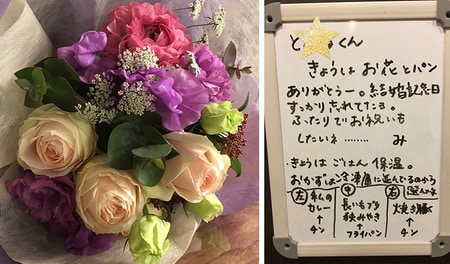 と くん
きょうは お花とパン
ありがとうー。結婚記念日
すっかり忘れてたョ。
ふたりでお祝いも
したいネ……… み
・きょうは ごはん 保温。
おかずは冷凍庫に並んでるのから
左 中 右 選んでネ
私の
カレー
↑
チン
長いもブタ
挟みやき
↑
フライパン
焼き豚
↑
チン